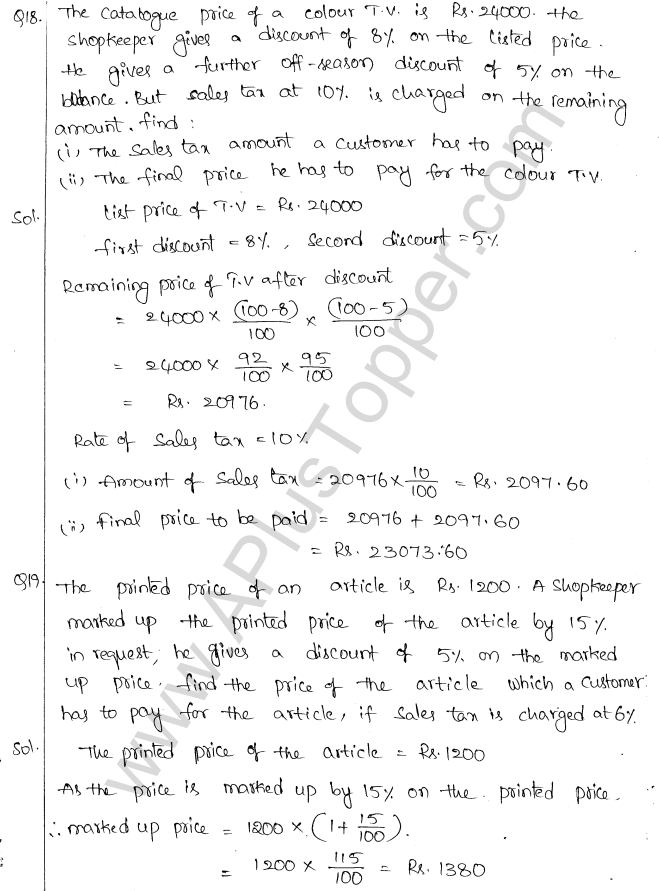 Q18. The Catalogue price of a colour T.V. is Rs. 24000. The
shopkeeper gives a discount of 8% on the listed price.
He gives a further off-season discount of 5% on the
balance. But sales tax at 10% is charged on the remaining
amount. find :
(i) The Sales tax amount a customer has to pay.
(ii) The final price he has to pay for the colour T.V.
Sol. List price of T.V = Rs. 24000
first discount = 8%, Second discount = 5%
Remaining price of T.V after discount
= 24000 × (100-8)/100 × (100-5)/100
= 24000 × 92/100 × 95/100
= Rs. 20976.
Rate of Sales tax = 10%
(i) Amount of Sales tax = 20976 × 10/100 = Rs. 2097.60
(ii) final price to be paid = 20976 + 2097.60
= Rs. 23073.60
Q19. The printed price of an article is Rs. 1200. A Shopkeeper
marked up the printed price of the article by 15%.
in request, he gives a discount of 5% on the marked
up price. find the price of the article which a customer
has to pay for the article, if Sales tax is charged at 6%.
Sol. The printed price of the article = Rs. 1200
As the price is marked up by 15% on the printed price.
∴ marked up price = 1200 × (1 + 15/100).
= 1200 × 115/100 = Rs. 1380
www.APlusTopper.com